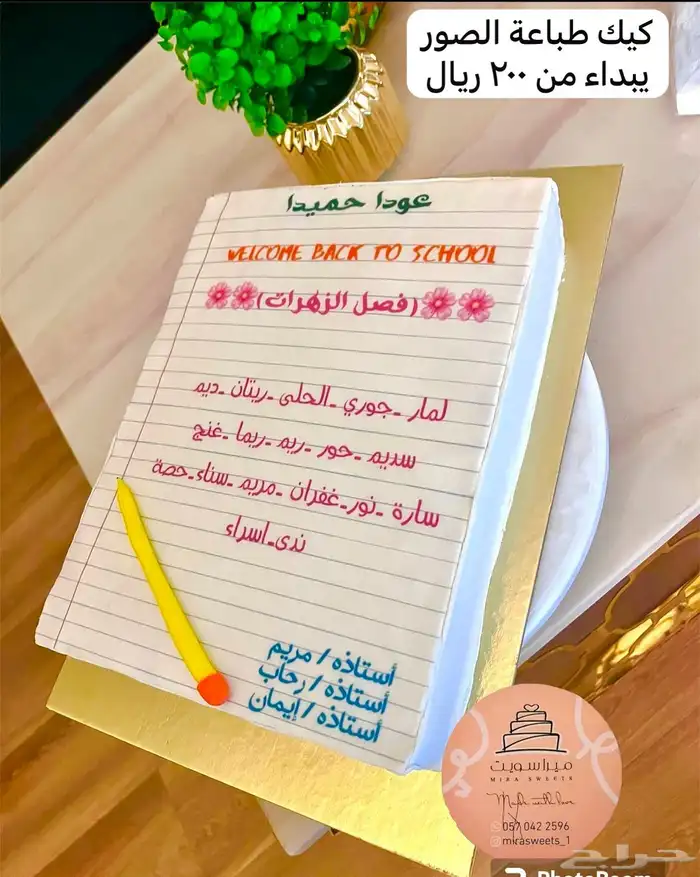 كيك طباعة الصور
يبداء من ٢٠٠ ريال
عودا حميدا
WELCOME BACK TO SCHOOL
(فصل الزهرات)
لمار - جوري - الحلى - ريتان - ديم
سديم - حور - ريم - ريما - غنج
سارة - نور - غفران - مريم - سناء - حصة
ندى - اسراء
أستاذه / مريم
أستاذه / رحاب
أستاذه / إيمان
ميرا سويت
MIRA SWEETS
Made with love
057 042 2596
mirasweets_1
حراج
PhotoRoom